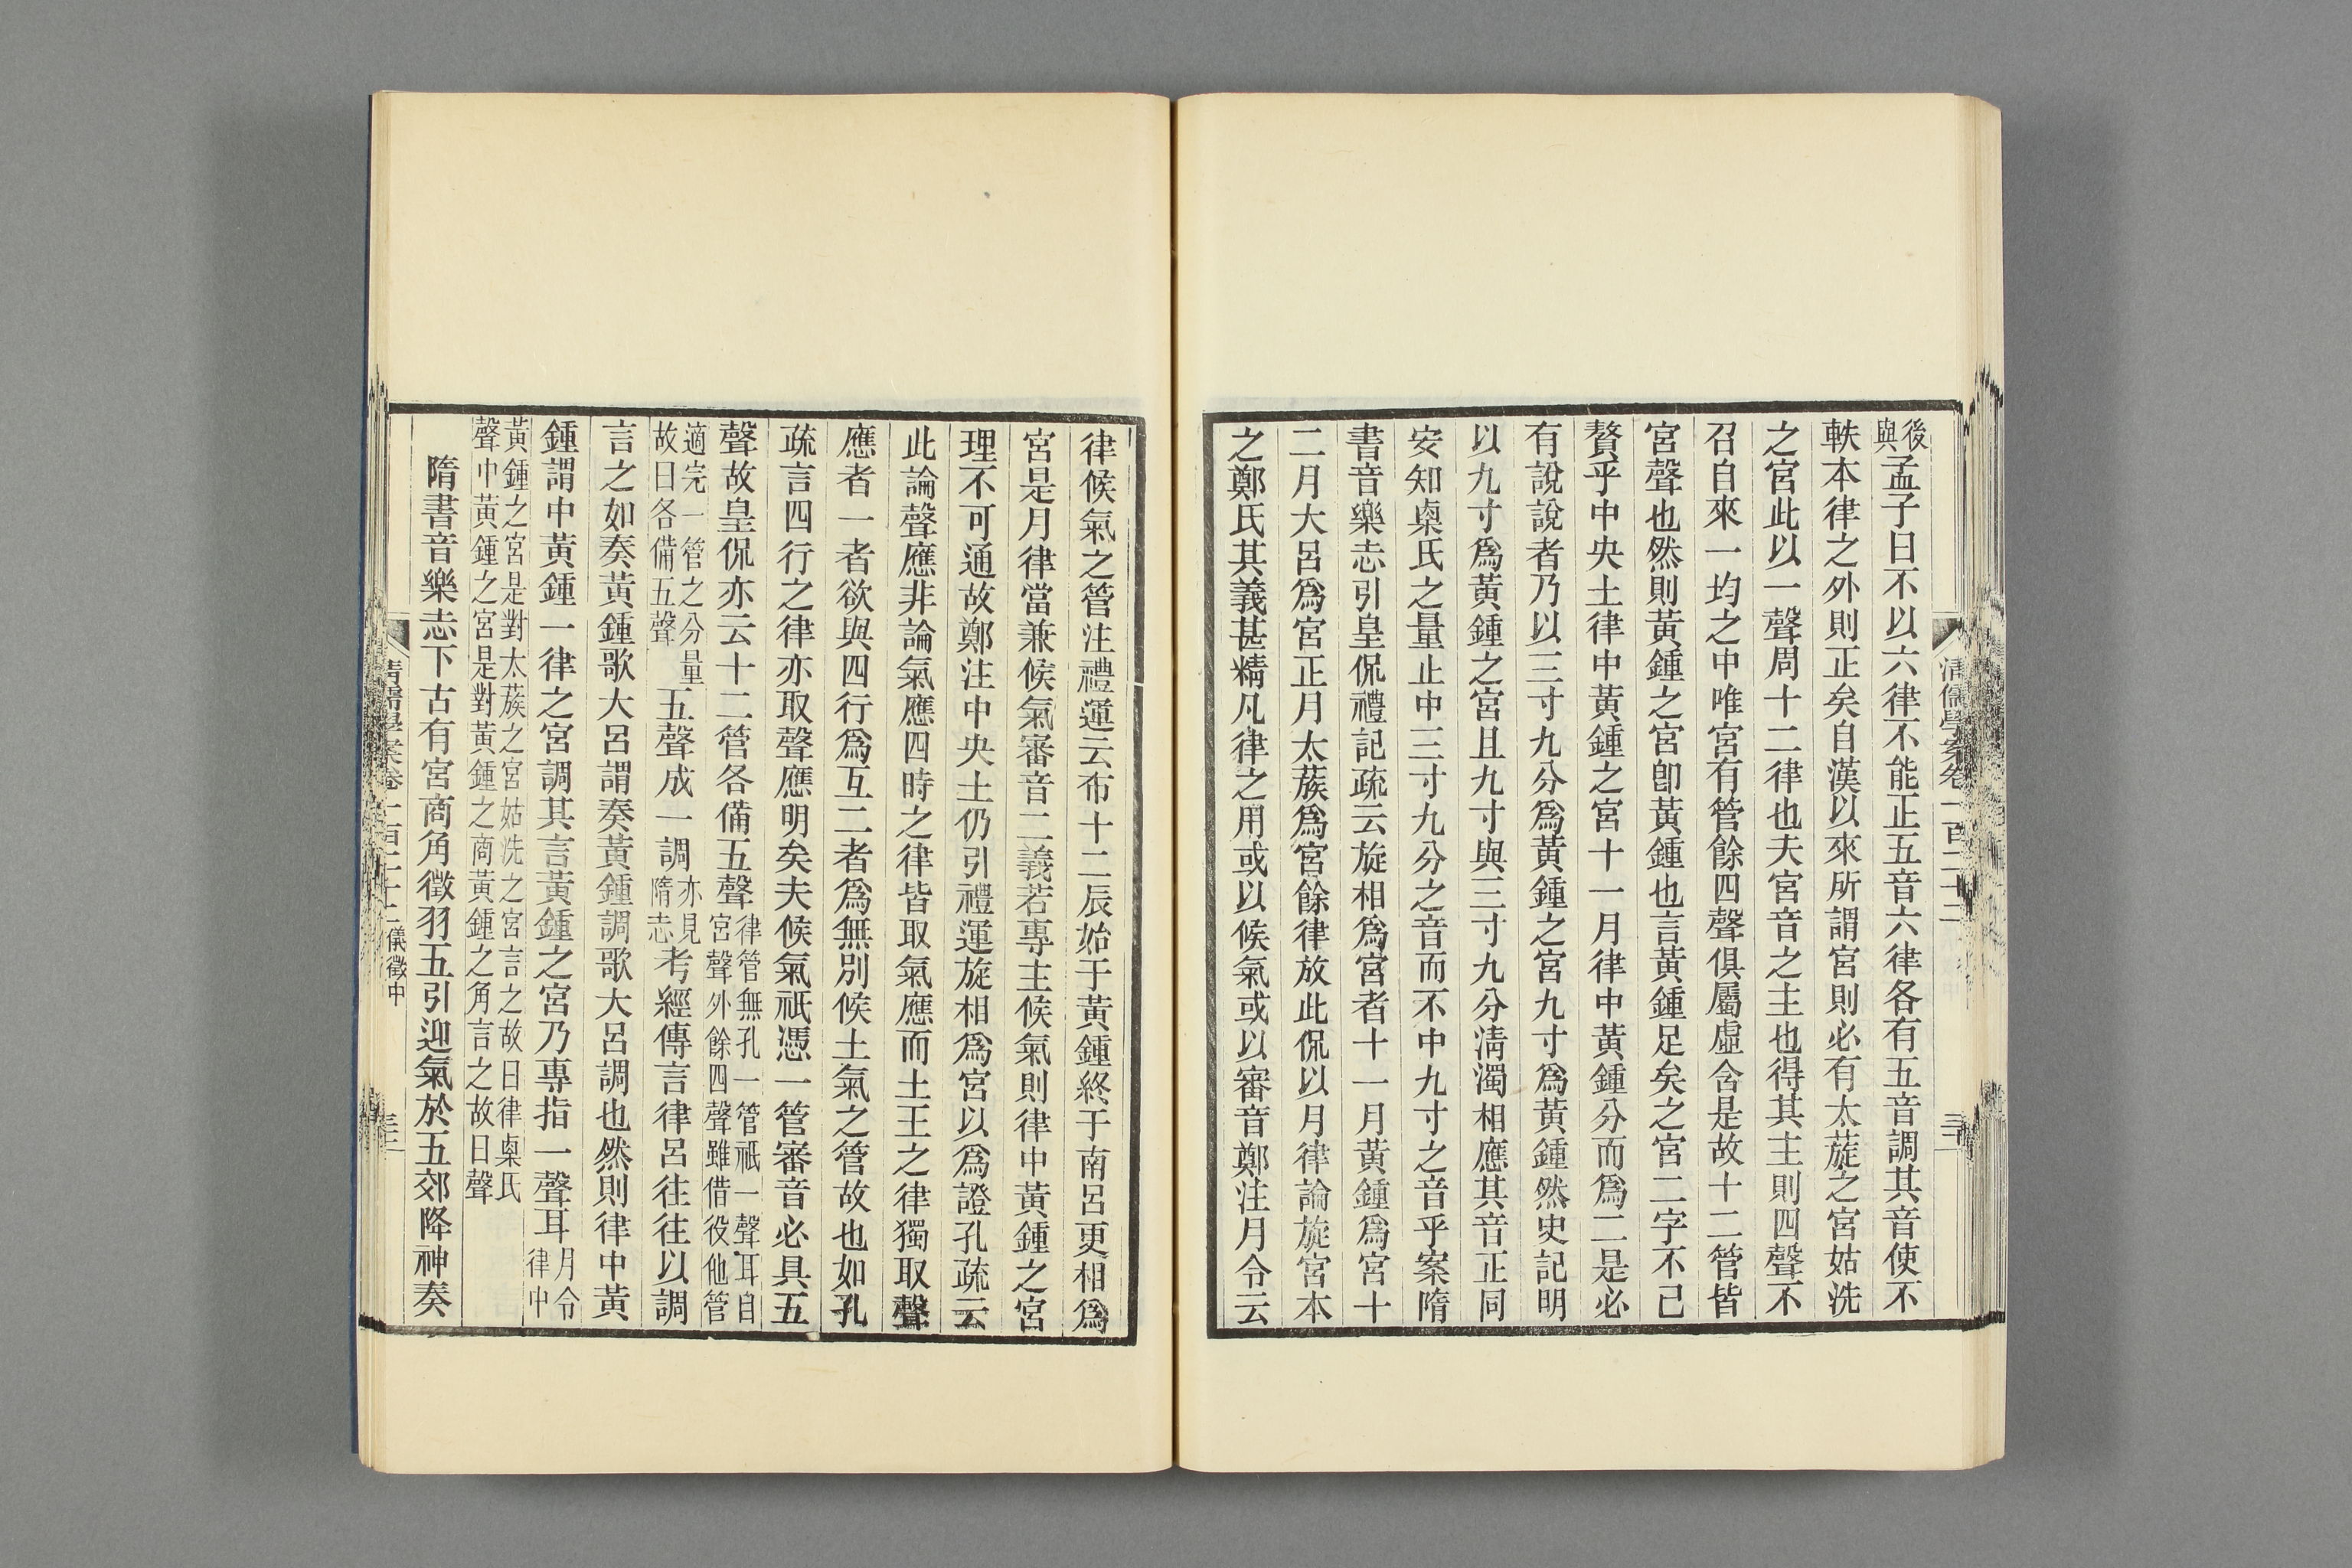 後與孟子曰不以六律不能正五音六律各有五音調其音使不
軼本律之外則正矣自漢以來所謂宮則必有太蔟之宮姑洗
之宮此以一聲周十二律也夫宮音之主也得其主則四聲不
召自來一均之中唯宮有管餘四聲俱屬虛含是故十二管皆
宮聲也然則黃鍾之宮卽黃鍾也言黃鍾足矣之宮二字不已
贅乎中央土律中黃鍾之宮十一月律中黃鍾分而爲二是必
有說說者乃以三寸九分爲黃鍾之宮九寸爲黃鍾然史記明
以九寸爲黃鍾之宮且九寸與三寸九分淸濁相應其音正同
安知㮚氏之量止中三寸九分之音而不中九寸之音乎案隋
書音樂志引皇侃禮記疏云旋相爲宮者十一月黃鍾爲宮十
二月大呂爲宮正月太蔟爲宮餘律放此侃以月律論旋宮本
之鄭氏其義甚精凡律之用或以候氣或以審音鄭注月令云
清儒學案卷一百二十二
三十一
律候氣之管注禮運云布十二辰始于黃鍾終于南呂更相爲
宮是月律當兼候氣審音二義若專主候氣則律中黃鍾之宮
理不可通故鄭注中央土仍引禮運旋相爲宮以爲證孔疏云
此論聲應非論氣應四時之律皆取氣應而土王之律獨取聲
應者一者欲與四行爲互二者爲無別候土氣之管故也如孔
疏言四行之律亦取聲應明矣夫候氣祇憑一管審音必具五
聲故皇侃亦云十二管各備五聲律管無孔一管祇一聲耳自宮聲外餘四聲雖借役他管
適完一管之分量故曰各備五聲五聲成一調亦見隋志考經傳言律呂往往以調
言之如奏黃鍾歌大呂謂奏黃鍾調歌大呂調也然則律中黃
鍾謂中黃鍾一律之宮調其言黃鍾之宮乃專指一聲耳月令律中
黃鍾之宮是對太蔟之宮姑洗之宮言之故曰律㮚氏聲中黃鍾之宮是對黃鍾之商黃鍾之角言之故曰聲
隋書音樂志下古有宮商角徵羽五引迎氣於五郊降神奏
清儒學案卷一百二十二儀徵中